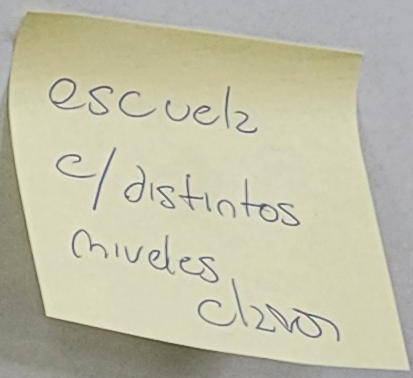 escuela
c/ distintos
niveles
claros